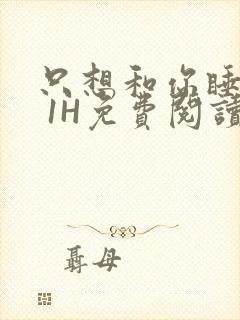 只想和你睡
1H免費閱讀
聶母